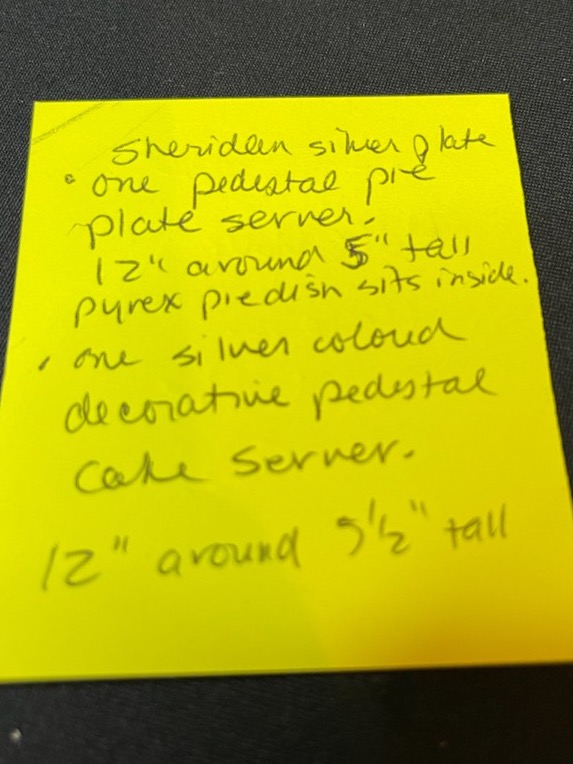 Sheridan silver plate
• one pedestal pie
plate server.
12" around 5" tall
pyrex piedish sits inside.
• one silver coloud
decorative pedestal
cake server.
12" around 5 1/2" tall